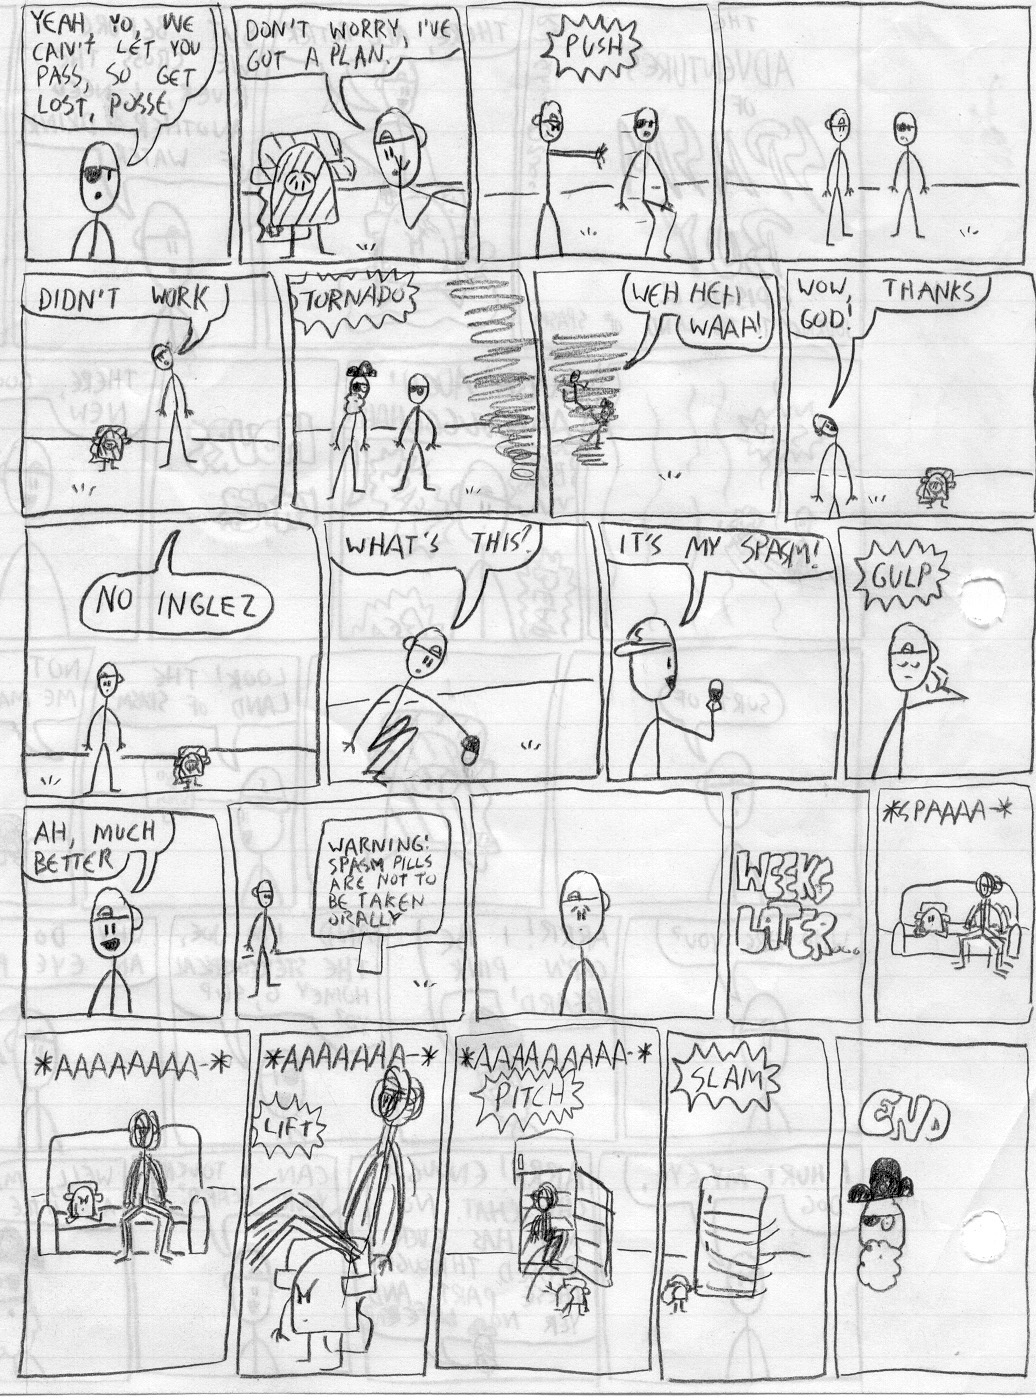 YEAH, YO, WE
CAIN'T LET YOU
PASS, SO GET
LOST, POSSE
DON'T WORRY, I'VE
GOT A PLAN.
PUSH
DIDN'T WORK
TORNADO
WEH HEH
WAAH!
WOW, THANKS
GOD!
NO INGLEZ
WHAT'S THIS?
IT'S MY SPASM!
GULP
AH, MUCH
BETTER
WARNING!
SPASM PILLS
ARE NOT TO
BE TAKEN
ORALLY
WEEKS
LATER...
*SPAAAA-*
*AAAAAAAA-*
*AAAAAAA-*
LIFT
*AAAAAAAAA-*
PITCH
SLAM
END